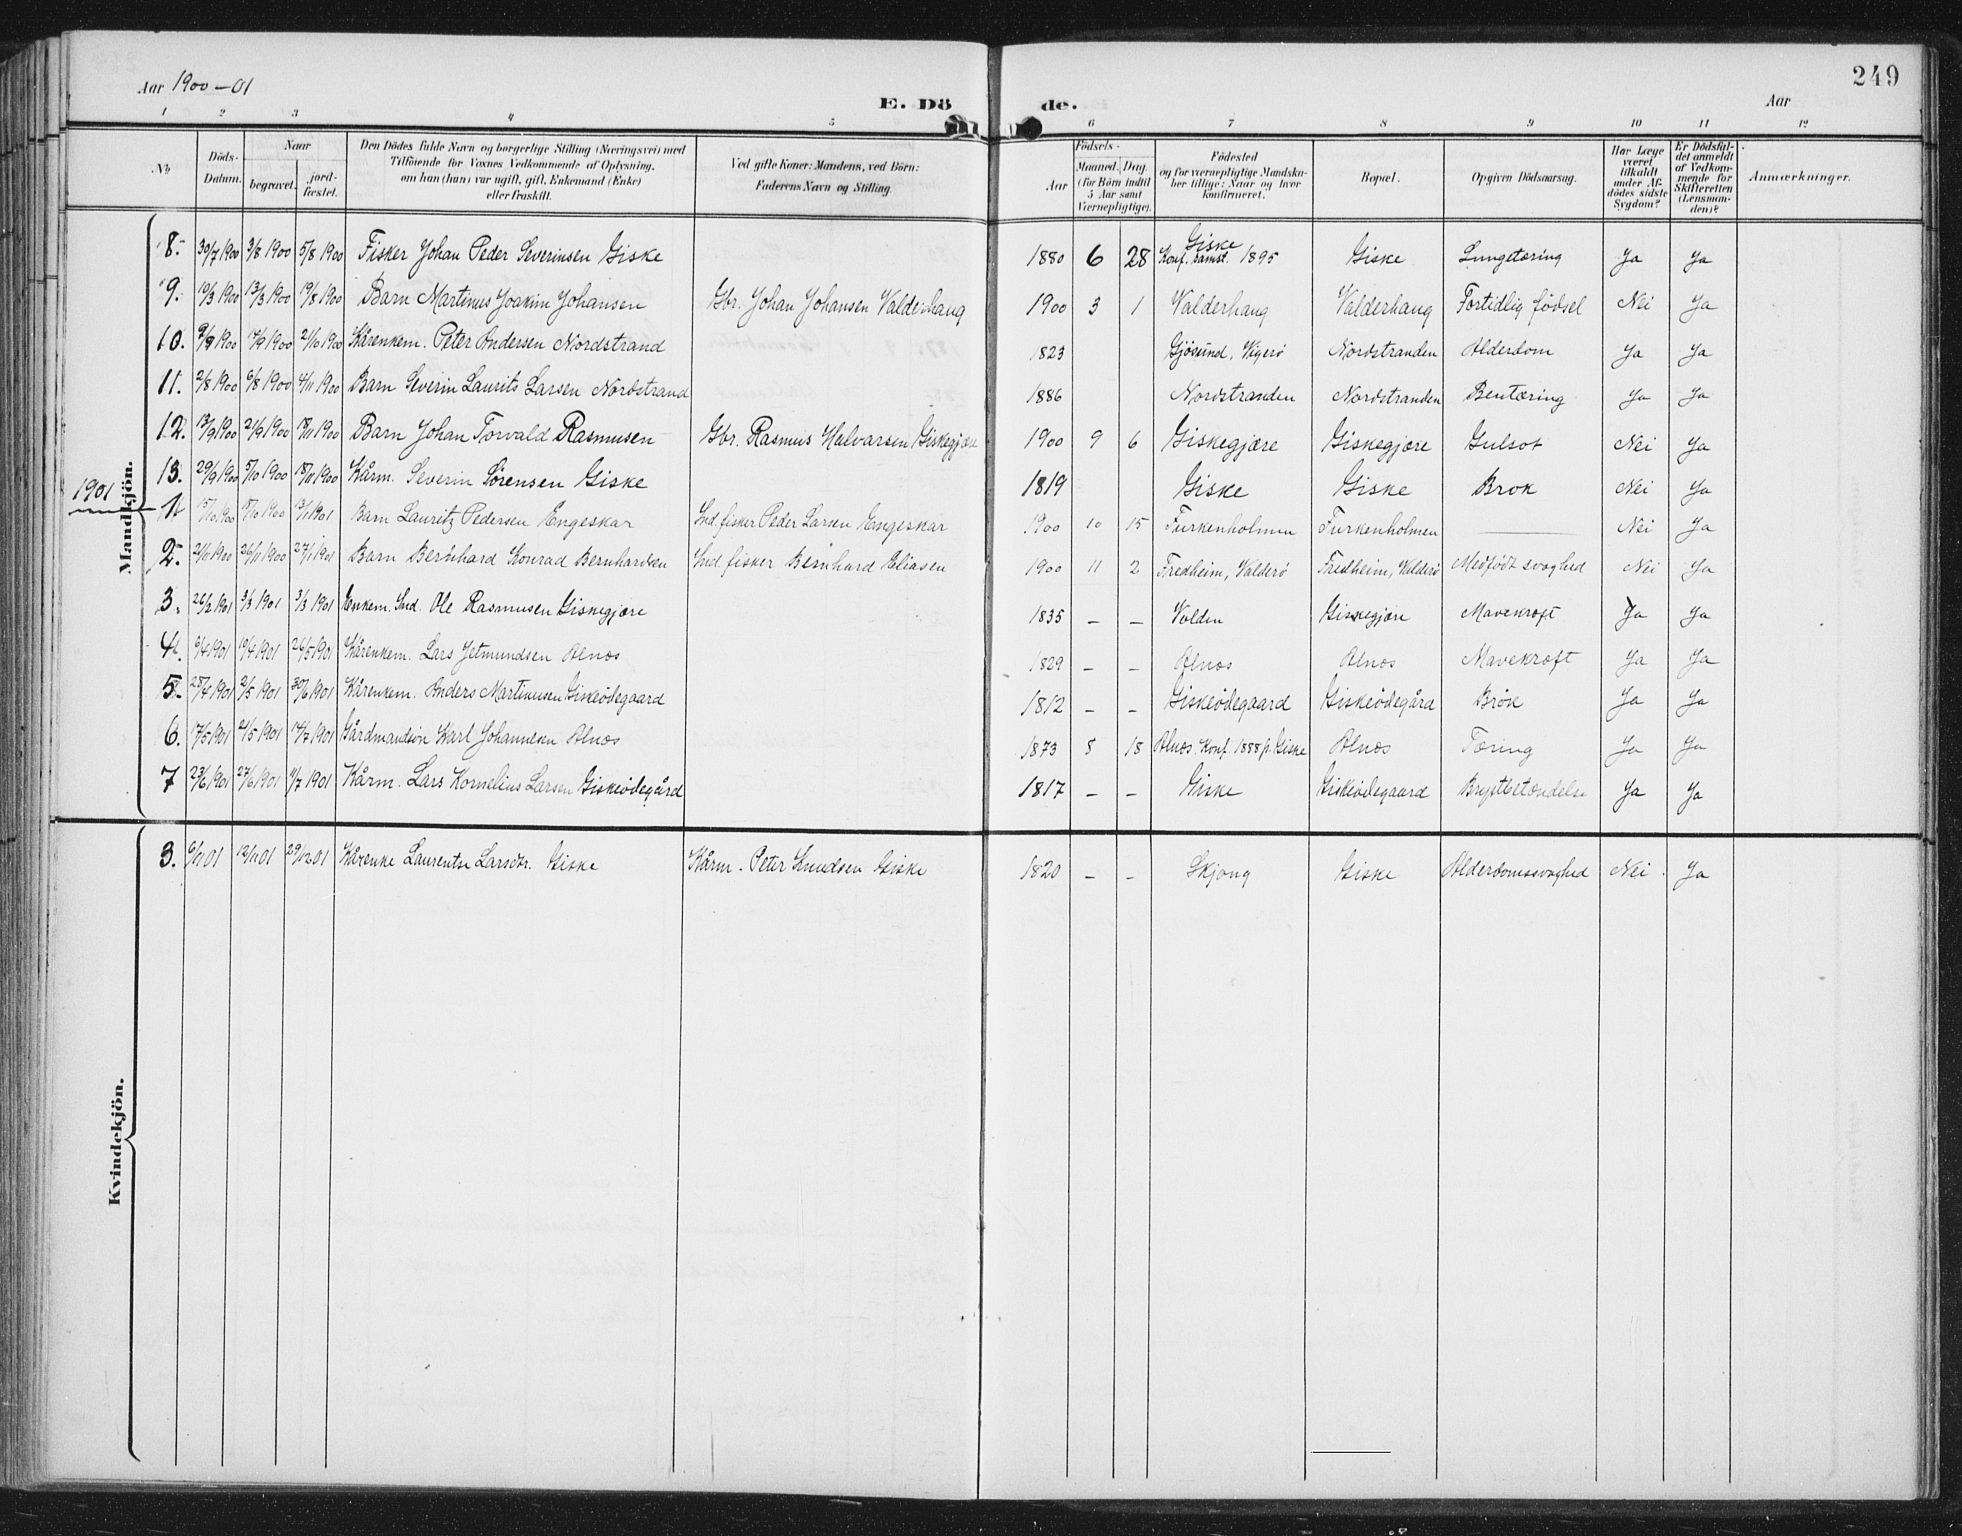 249
Aar 1900-01
E. Dö de.
Aar
1 2 3 4 5 6 7 8 9 10 11 12
No
Döds-Datum.
Naar
begravet.
jord-fæstet.
Den Dödes fulde Navn og borgerlige Stilling (Næringsvei) med Tilföiende for Voxnes Vedkommende af Oplysning, om han (hun) var ugift, gift, Enkemand (Enke) eller fraskilt.
Ved gifte Koner: Mandens, ved Börn: Faderens Navn og Stilling.
Födsels-
Aar
Maaned. Dag.
(for Börn indtil 5 Aar samt Værnepligtige).
Födested og for værnepligtige Mandskaber tillige: Naar og hvor konfirmeret.
Bopæl.
Opgiven Dödsaarsag.
Har Læge været tilkaldt under Afdödes sidste Sygdom?
Er Dödsfaldet anmeldt af Vedkommende for Skifteretten (Lensmanden)?
Anmærkninger.
Mandkjön.
8. 30/7 1900 3/8 1900 5/8 1900 Fisker Johan Peder Severinsen Giske 1880 6 28 Giske Konf. samst. 1895 Giske Lungetæring Ja Ja
9. 10/3 1900 13/3 1900 19/8 1900 Barn Martinus Joakim Johansen Gbr. Johan Johansen Valderhaug 1900 3 1 Valderhaug Valderhaug Fortidlig födsel Nei Ja
10. 9/9 1900 14/9 1900 21/10 1900 Kårenkem. Peter Andersen Nordstrand 1823 Gjösund, Vigerö Nordstranden Alderdom Ja Ja
11. 2/8 1900 6/8 1900 4/11 1900 Barn Severin Laurits Larsen Nordstrand 1886 Nordstranden Nordstranden Bentæring Ja Ja
12. 13/9 1900 21/9 1900 18/11 1900 Barn Johan Torvald Rasmusen Gbr. Rasmus Halvarsen Giskegjære 1900 9 6 Giskegjære Giskegjære Gulsot Nei Ja
13. 29/9 1900 5/10 1900 18/11 1900 Kårm. Severin Sørensen Giske 1819 Giske Giske Brok Nei Ja
1901
1. 15/10 1900 18/10 1900 13/1 1901 Barn Lauritz Pedersen Engeskar Ind. fisker Peder Larsen Engeskar 1900 10 15 Furkenholmen Furkenholmen — Nei Ja
2. 21/11 1900 26/11 1900 27/1 1901 Barn Bernhard Konrad Bernhardsen Ind. fisker Bernhard Eliasen 1900 11 2 Fredheim, Valderö Fredheim, Valderö Medfödt svaghed Nei Ja
3. 26/2 1901 3/3 1901 3/3 1901 Enkem. Ind. Ole Rasmusen Giskegjære 1835 – – Valden Giskegjære Mavekræft Ja Ja
4. 6/4 1901 19/4 1901 26/5 1901 Kårenkem. Lars Jetmundsen Alnæs 1829 – – Alnæs Alnæs Mavekræft Ja Ja
5. 25/4 1901 2/5 1901 30/6 1901 Kårenkem. Anders Martinusen Giskeödegaard 1812 – – Giskeödegaard Giskeödegård Brök Ja Ja
6. 17/5 1901 21/5 1901 14/7 1901 Gårdmandsön Karl Johannesen Alnæs 1873 5 18 Alnæs. Konf. 1888 p. Giske Alnæs Tæring Ja Ja
7 23/6 1901 27/6 1901 11/7 1901 Kårm. Lars Kornelius Larsen Giskeödegård 1817 – – Giske Giskeödegaard Brystbetændelse Ja Ja
Kvindekjön.
3. 6/11 01 12/11 01 29/12 01 Kårenke Laurentse Larsdtr. Giske Kårm. Peter Knudsen Giske 1820 – – Skjong Giske Alderdomssvaghed Nei Ja